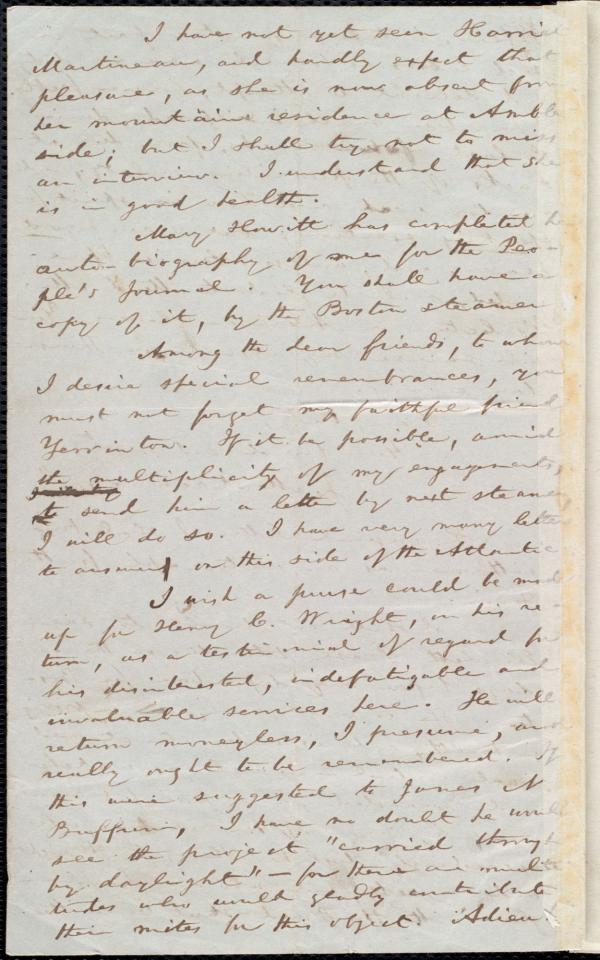 I have not yet seen Harriet
Martineau, and hardly expect that
pleasure, as she is now absent from
her mountain residence at Amble-
side; but I shall try not to miss
an interview. I understand that she
is in good health.
Mary Howitt has completed her
auto-biography of me for the Peo-
ple's Journal. You shall have a
copy of it, by the Boston steamer
Among the dear friends, to whom
I desire special remembrances, you
must not forget my faithful friend
Yerrinton. If it be possible, amid
the multiplicity of my engagements,
to send him a letter by next steamer,
I will do so. I have very many letters
to answer on this side of the Atlantic
I wish a purse could be made
up for Henry C. Wright, on his re-
turn, as a testimonial of regard for
his disinterested, indefatigable and
invaluable services here. He will
return moneyless, I presume, and
really ought to be remembered. If
this were suggested to James N.
Buffum, I have no doubt he would
see the project "carried through
by daylight" — for there are multi-
tudes who would gladly contribute
their mites for this object. Adieu.